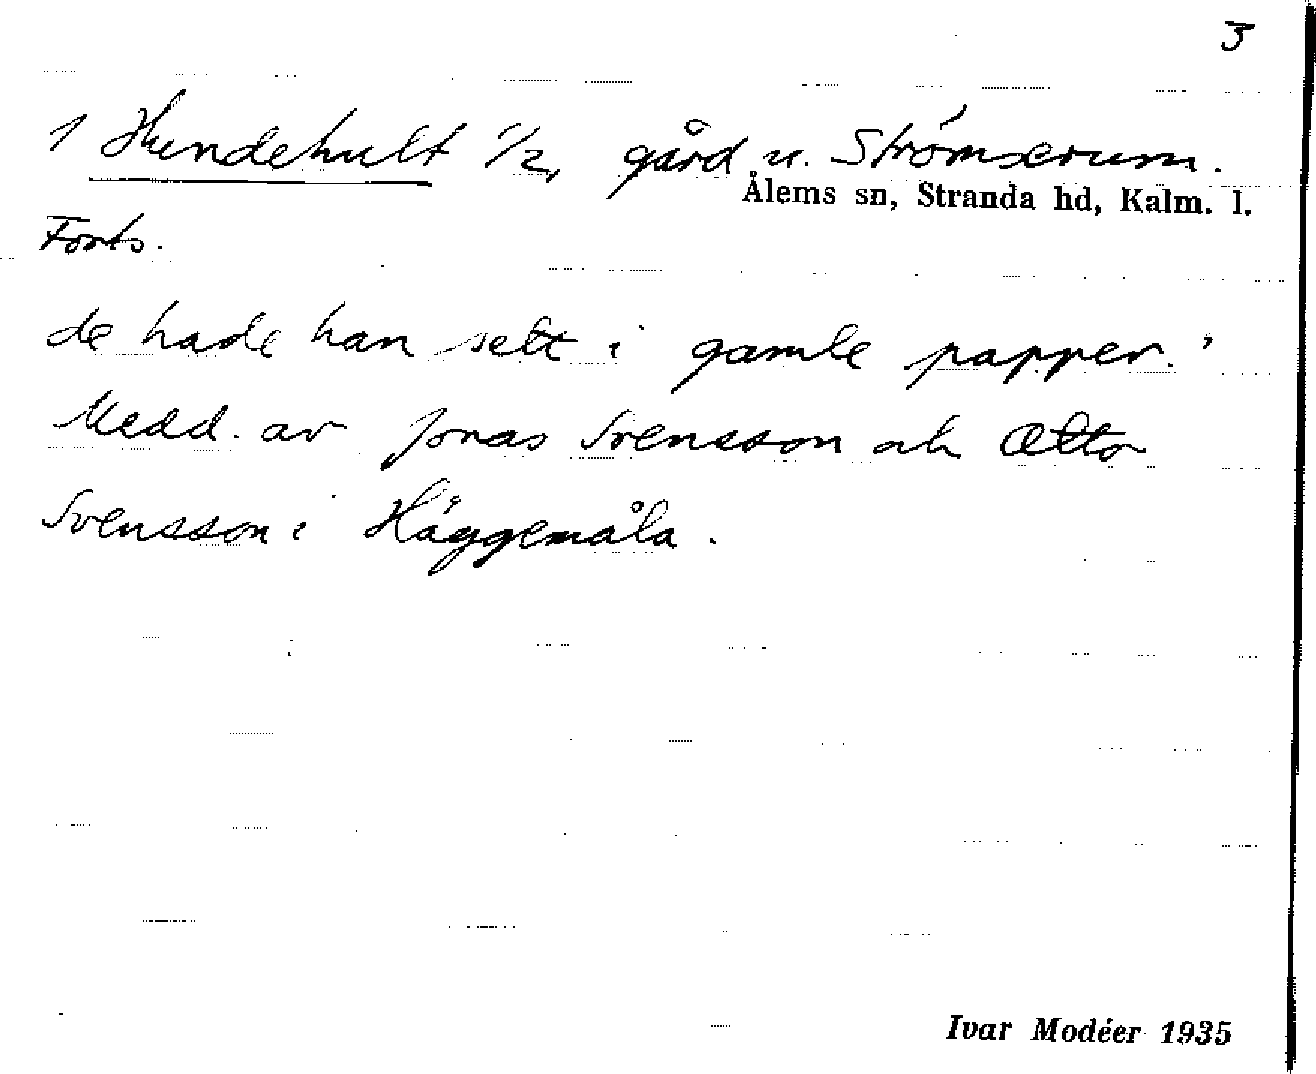 3
1 Hundehult 1/2, gård u. Strömserum.
Ålems sn, Stranda hd, Kalm. l.
Forts.
de hade han sett i gamle papper.'
Medd. av Jonas Svensson ock Otto
Svensson i Häggemåla.
Ivar Modéer 1935